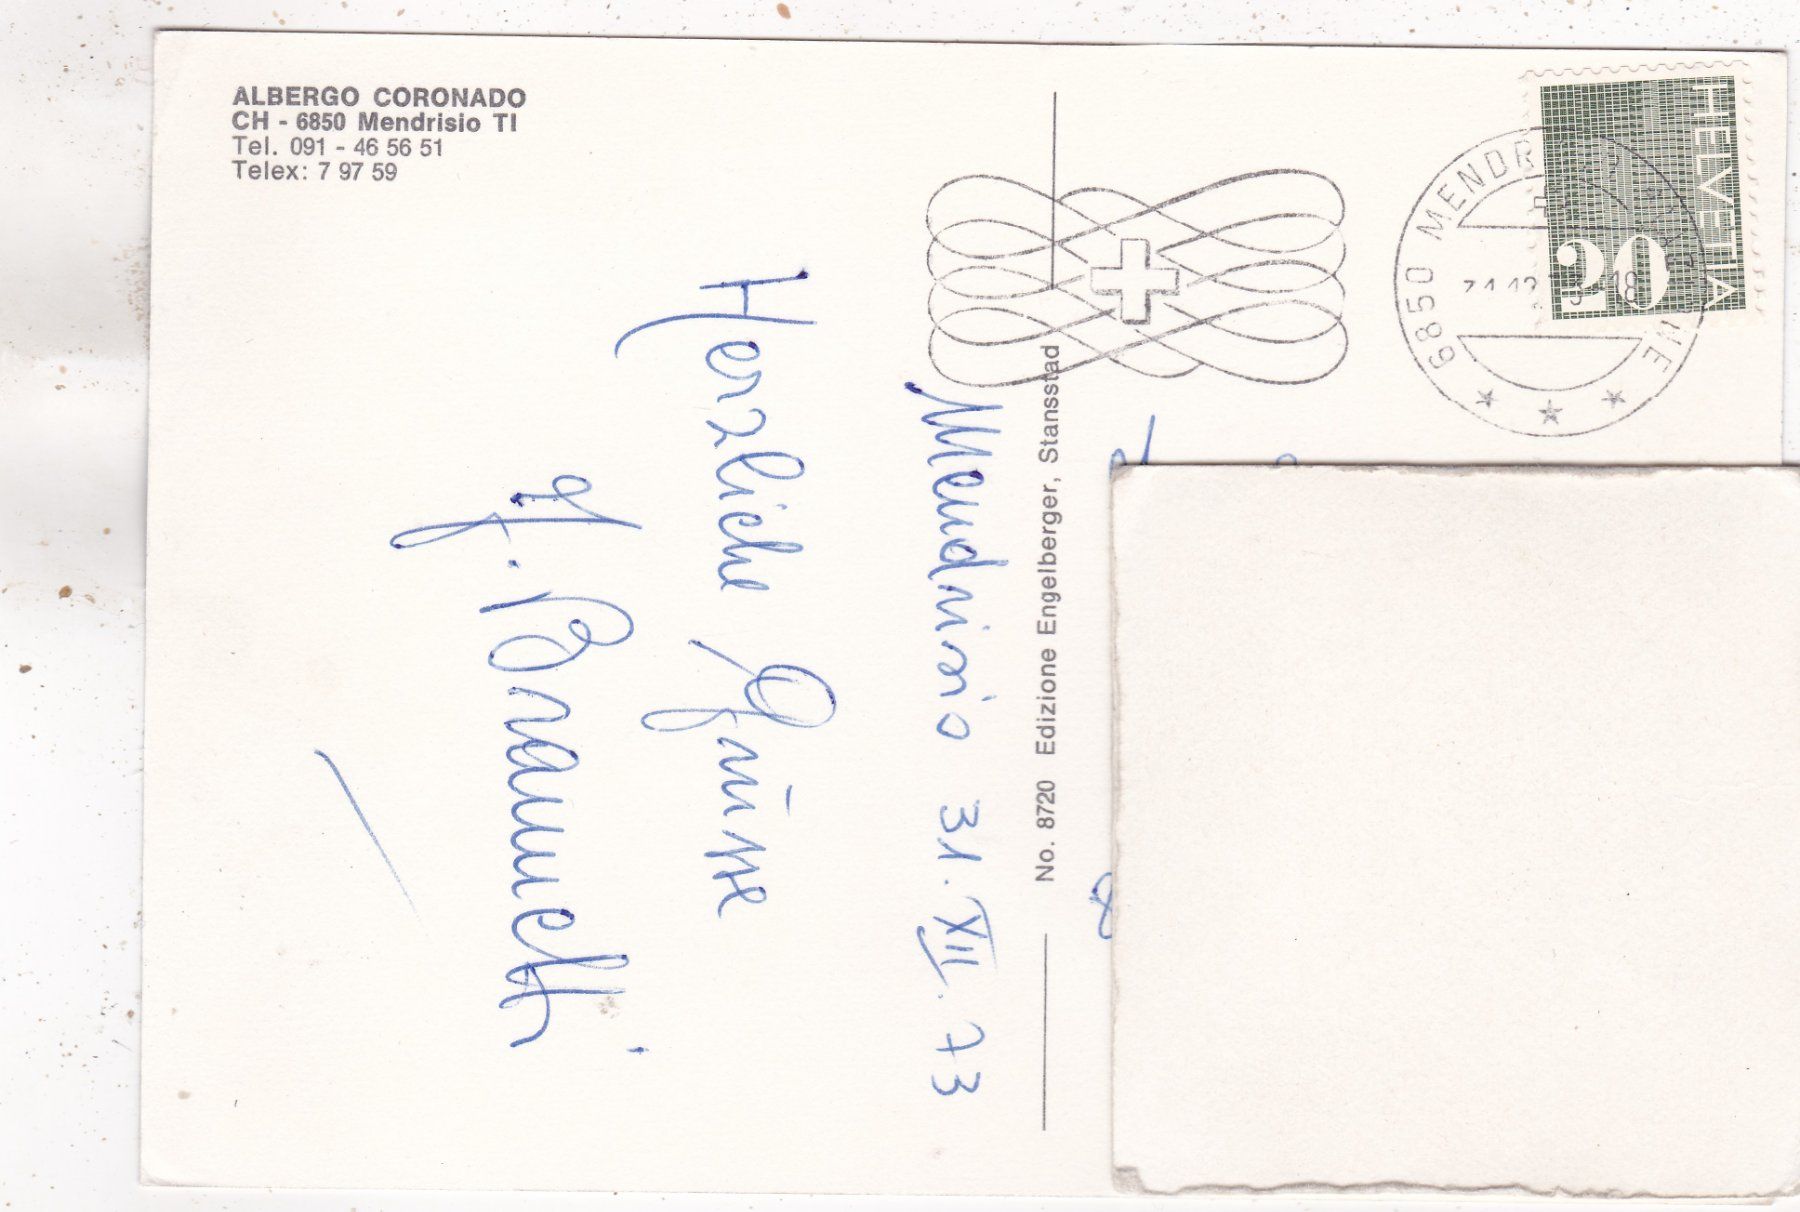 ALBERGO CORONADO
CH - 6850 Mendrisio TI
Tel. 091 - 46 56 51
Telex: 7 97 59
Mendrisio 31. XII. 73
Herzliche Grüsse
No. 8720 Edizione Engelberger, Stansstad
HELVETIA
20
6850 MENDR